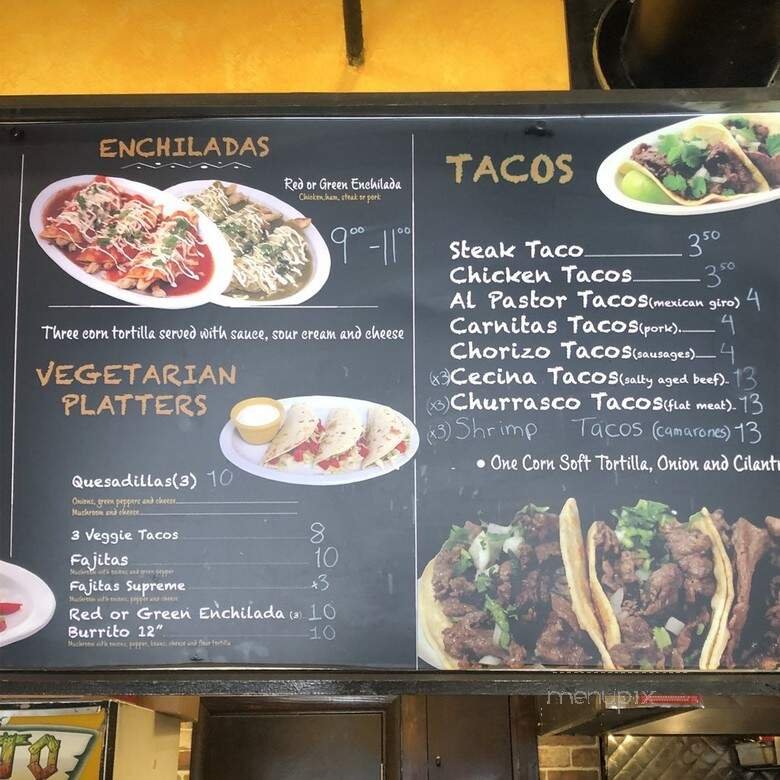 ENCHILADAS
Red or Green Enchilada
Chicken, ham, steak or pork
9⁰⁰ - 11⁰⁰
Three corn tortilla served with sauce, sour cream and cheese
VEGETARIAN
PLATTERS
Quesadillas(3) 10
Onions, green peppers and cheese
Mushroom and cheese
3 Veggie Tacos 8
Fajitas 10
Mushroom with onions and green pepper
Fajitas Supreme x3
Mushroom with onions, pepper and cheese
Red or Green Enchilada (3) 10
Burrito 12" 10
Mushroom with onions, pepper, beans, cheese and flour tortilla
TACOS
Steak Taco 3⁵⁰
Chicken Tacos 3⁵⁰
Al Pastor Tacos(mexican giro) 4
Carnitas Tacos(pork) 4
Chorizo Tacos(sausages) 4
(x3) Cecina Tacos(salty aged beef) 13
(x3) Churrasco Tacos(flat meat) 13
(x3) Shrimp Tacos (camarones) 13
• One Corn Soft Tortilla, Onion and Cilant
menupix
TO